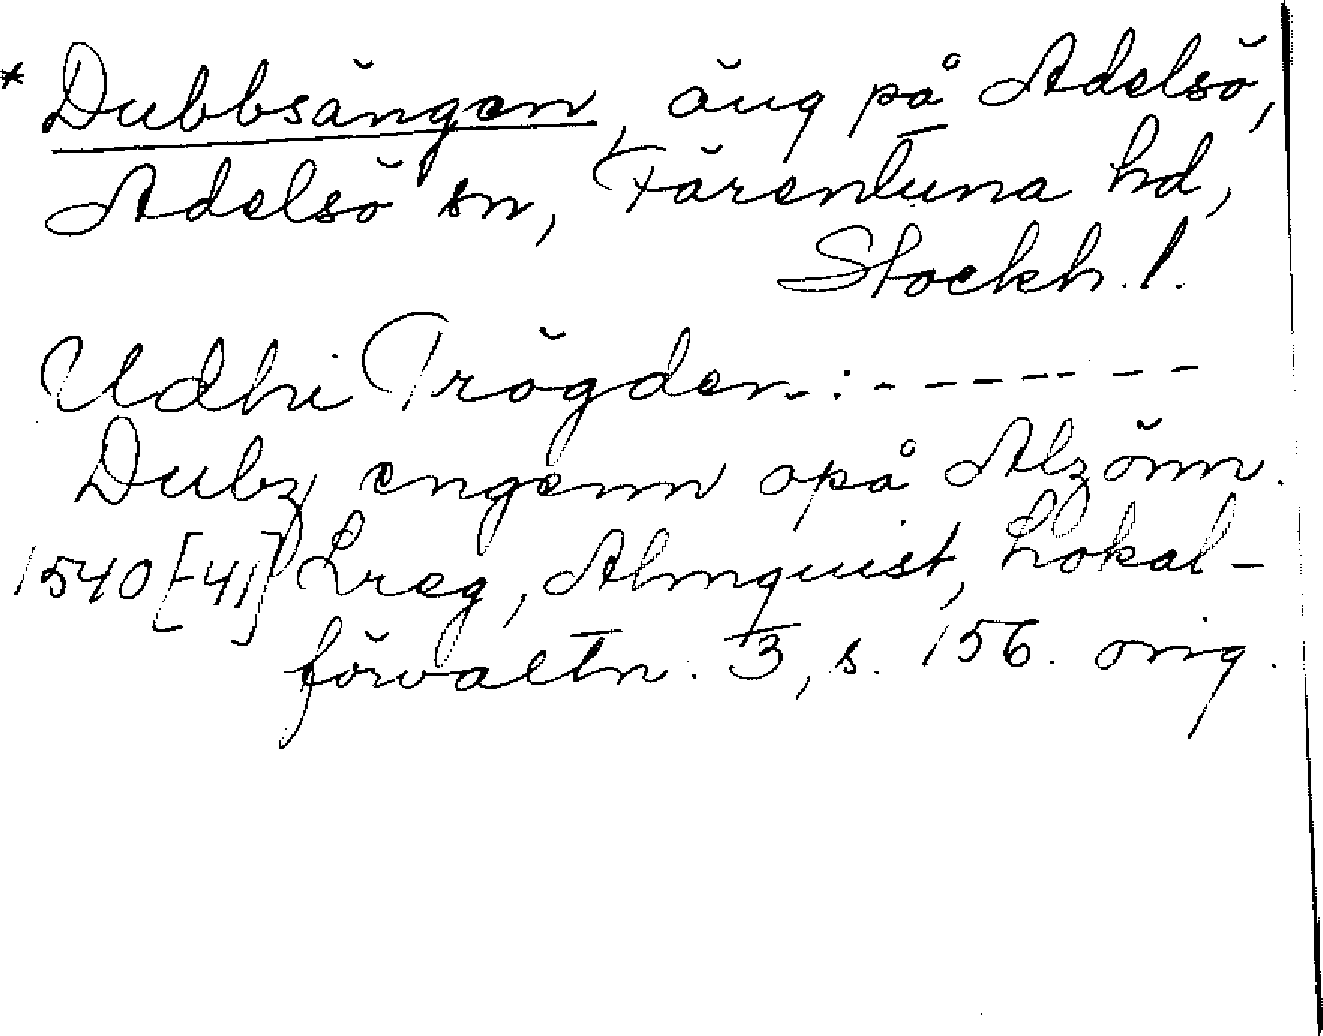 * Dubbsängen, äng på Adelsö,
Adelsö sn, Färentuna hd,
Stockh. l.
Udhi Trögden.:-------
Dubz engenn opå Alzönn.
1540[-41] Lreg, Almquist, Lokal-
förvaltn. 3, s. 156. orig.